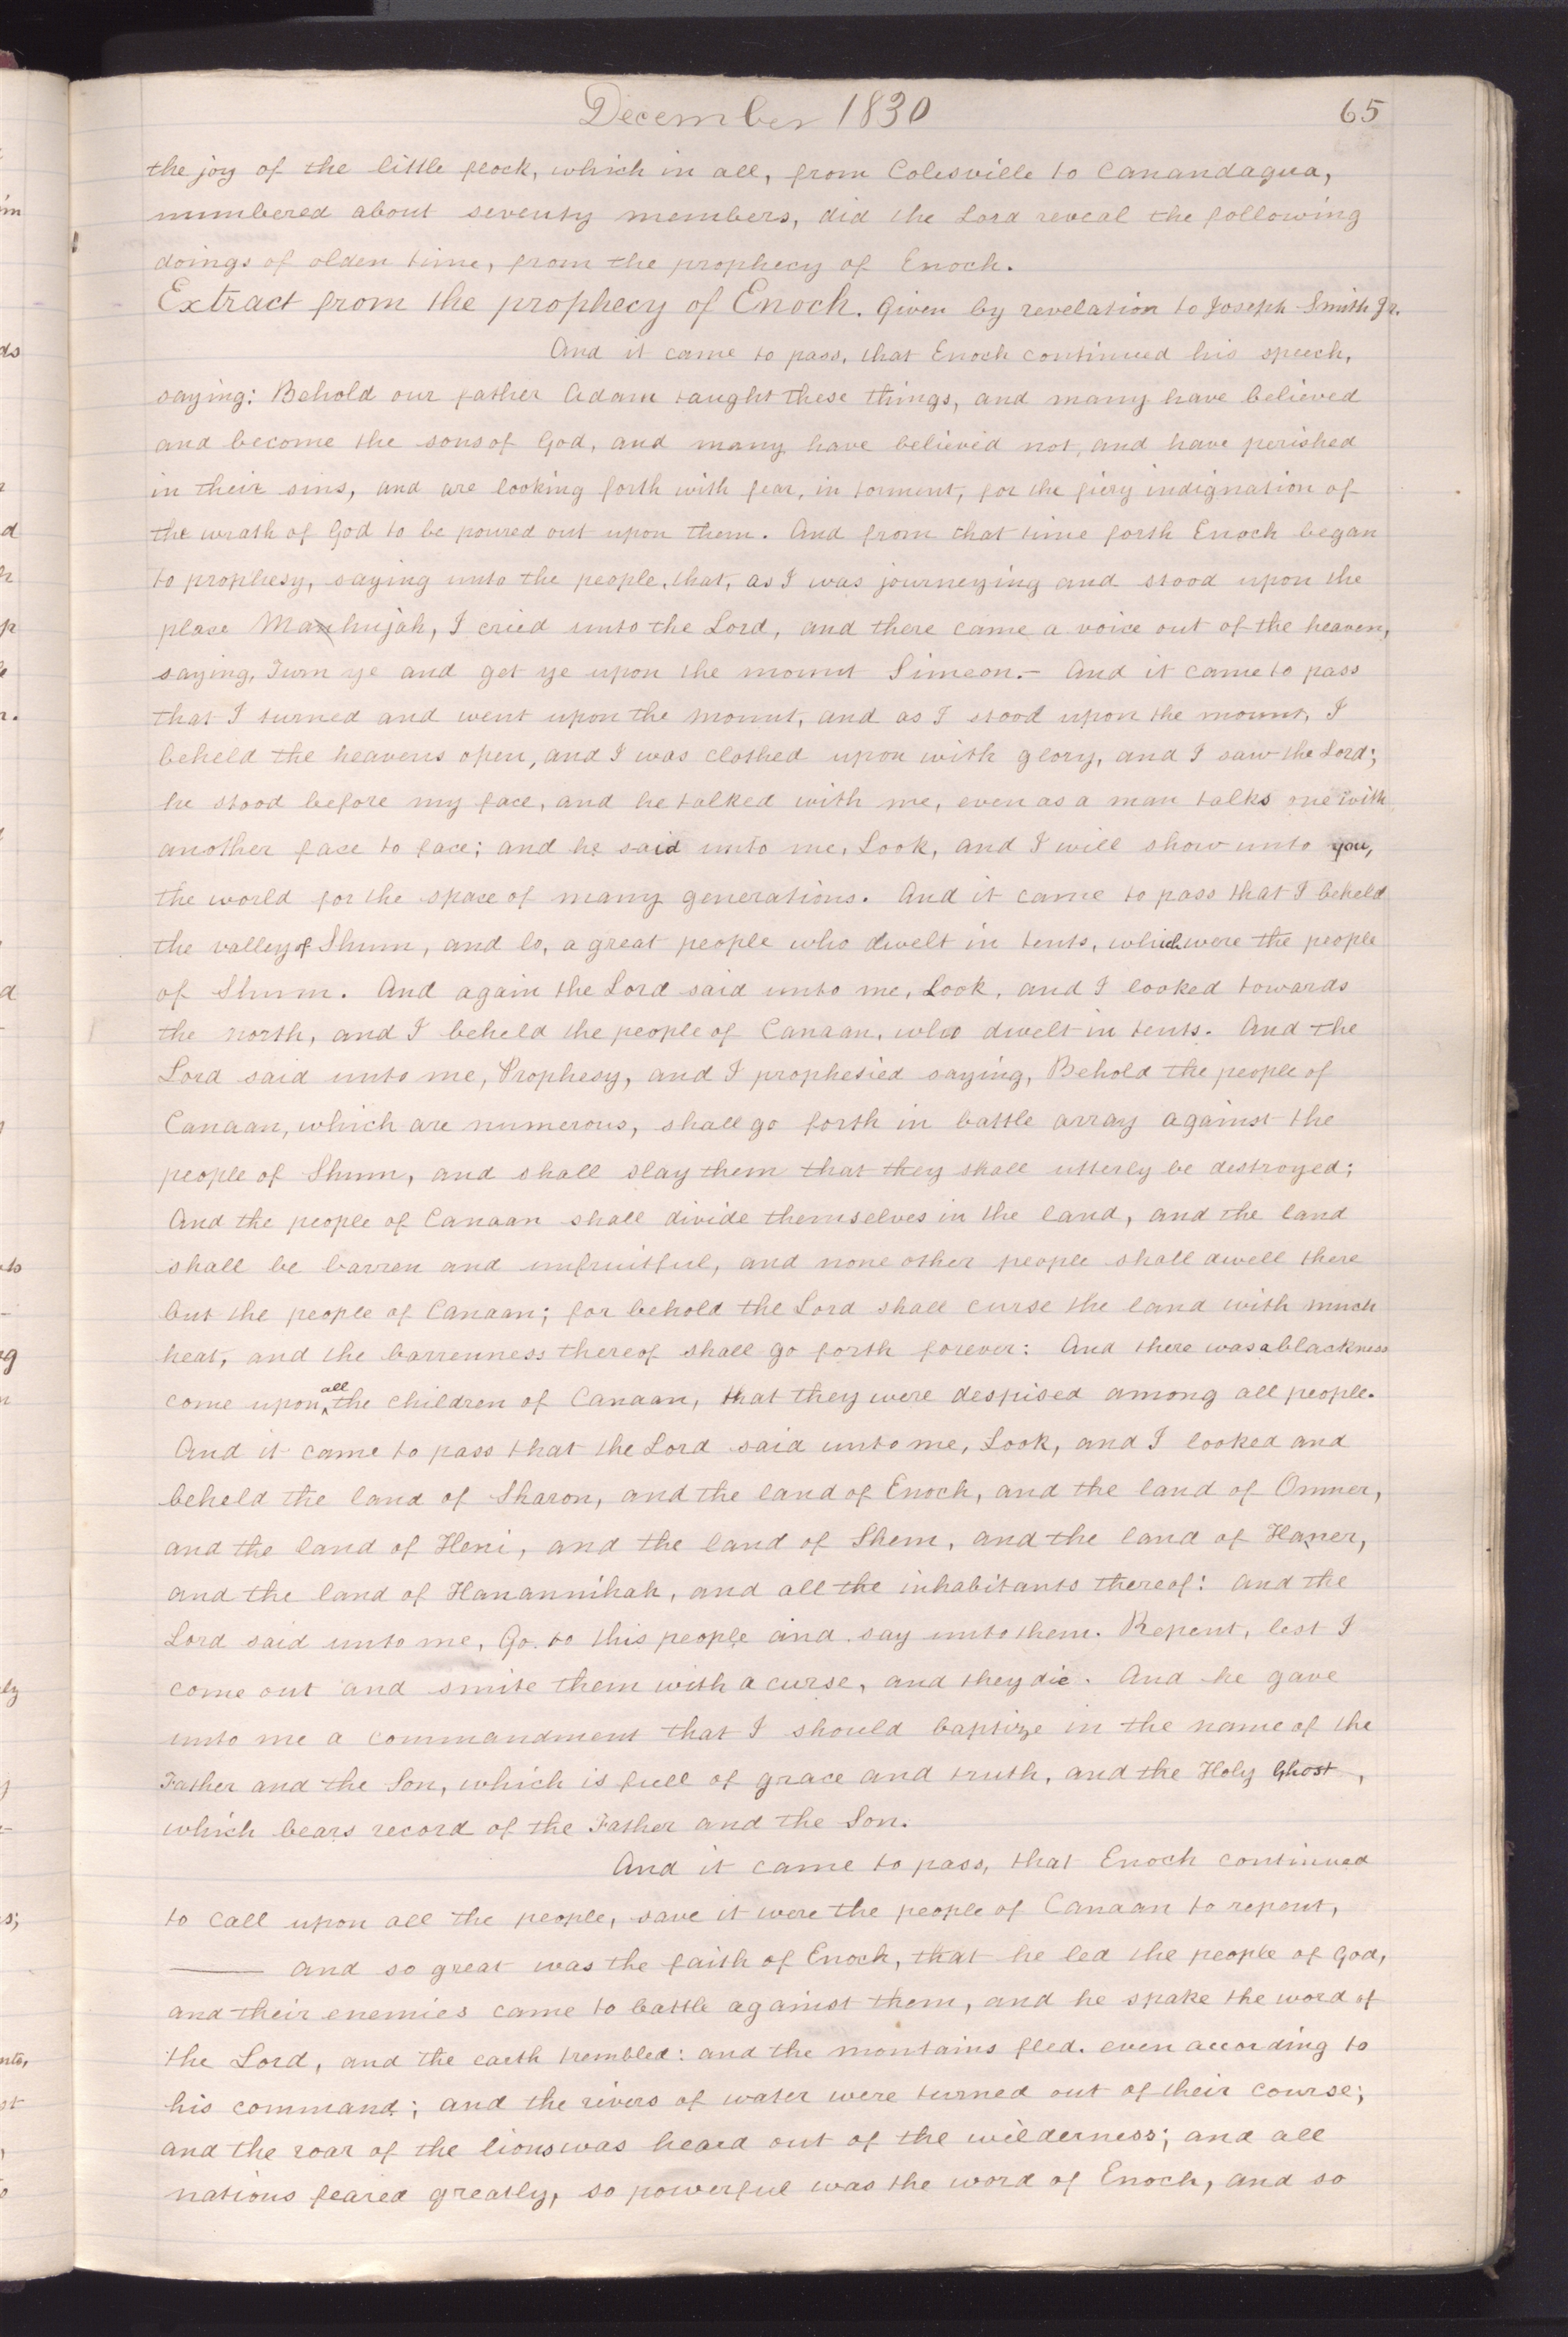 December 1830
65
the joy of the little flock, which in all, from Colesville to Canandagua,
numbered about seventy members, did the Lord reveal the following
doings of olden time, from the prophecy of Enoch.
Extract from the prophecy of Enoch. Given by revelation to Joseph Smith Jr.
And it came to pass, that Enoch continued his speech,
saying: Behold our father Adam taught these things, and many have believed
and become the sons of God, and many have believed not, and have perished
in their sins, and are looking forth with fear, in torment, for the fiery indignation of
the wrath of God to be poured out upon them. And from that time forth Enoch began
to prophesy, saying unto the people, that, as I was journeying and stood upon the
place Manhujah, I cried unto the Lord, and there came a voice out of the heaven,
saying, Turn ye and get ye upon the mount Simeon.- And it came to pass
that I turned and went upon the mount, and as I stood upon the mount, I
beheld the heavens open, and I was clothed upon with glory, and I saw the Lord;
he stood before my face, and he talked with me, even as a man talks one with
another face to face; and he said unto me, Look, and I will show unto you,
the world for the space of many generations. And it came to pass that I beheld
the valley of Shum, and lo, a great people who dwelt in tents, which were the people
of Shum. And again the Lord said unto me, Look, and I looked towards
the north, and I beheld the people of Canaan, who dwelt in tents. And the
Lord said unto me, Prophesy, and I prophesied saying, Behold the people of
Canaan, which are numerous, shall go forth in battle array against the
people of Shum, and shall slay them that they shall utterly be destroyed;
And the people of Canaan shall divide themselves in the land, and the land
shall be barren and unfruitful, and none other people shall dwell there
but the people of Canaan; for behold the Lord shall curse the land with much
heat, and the barrenness thereof shall go forth forever: And there was a blackness
come upon all the children of Canaan, that they were despised among all people.
And it came to pass that the Lord said unto me, Look, and I looked and
beheld the land of Sharon, and the land of Enoch, and the land of Omner,
and the land of Heni, and the land of Shem, and the land of Haner,
and the land of Hanannihah, and all the inhabitants thereof: and the
Lord said unto me, Go to this people and say unto them. Repent, lest I
come out and smite them with a curse, and they die. And he gave
unto me a commandment that I should baptize in the name of the
Father and the Son, which is full of grace and truth, and the Holy Ghost,
which bears record of the Father and the Son.
And it came to pass, that Enoch continued
to call upon all the people, save it were the people of Canaan to repent,
—— and so great was the faith of Enoch, that he led the people of God,
and their enemies came to battle against them, and he spake the word of
the Lord, and the earth trembled: and the montains fled. even according to
his command; and the rivers of water were turned out of their course;
and the roar of the lions was heard out of the wilderness; and all
nations feared greatly, so powerful was the word of Enoch, and so